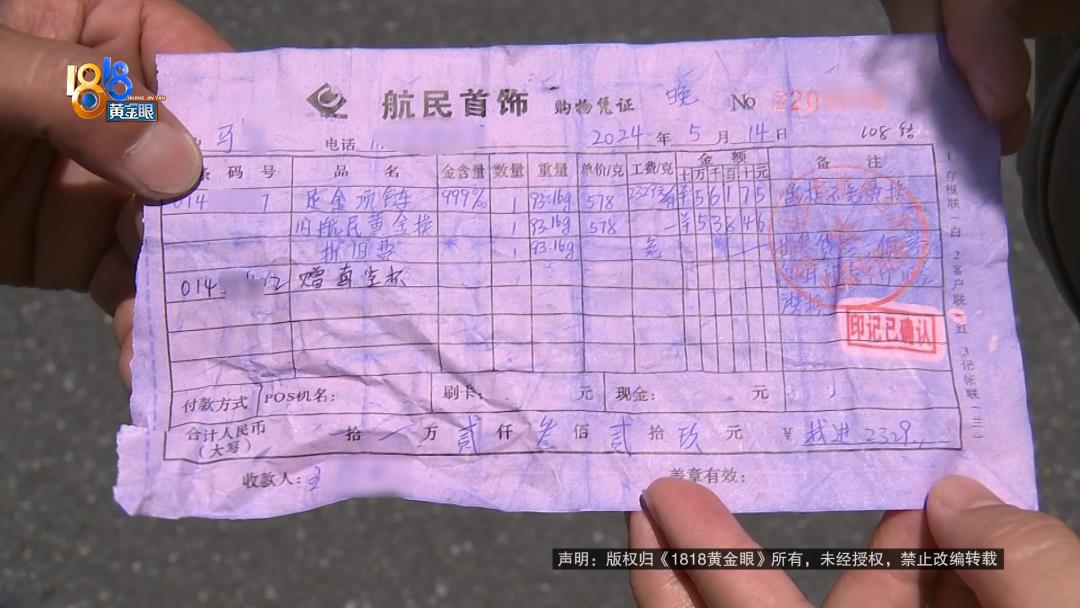 1818
HUANG JIN YAN
黄金眼
航民首饰 购物凭证 晚 No 220
马 电话 2024 年 5 月 14 日 108 结
条码号 品名 金含量 数量 重量 单价/克 工费/克 金额 备注
十万千百十元
014 7 足金项链 999‰ 1 93.16g 578 ¥56175
旧航民黄金换 1 93.16g 578 ¥53846
折旧费 93.16g 免
014 赠真空杯
印记已确认
付款方式 POS机名: 刷卡: 元 现金: 元
合计人民币(大写) 拾 万 贰 仟 叁 佰 贰 拾 玖 元 ¥ 找进 2329
收款人: 盖章有效:
1存根联(白) 2客户联(红) 3记帐联(三)
声明:版权归《1818黄金眼》所有,未经授权,禁止改编转载